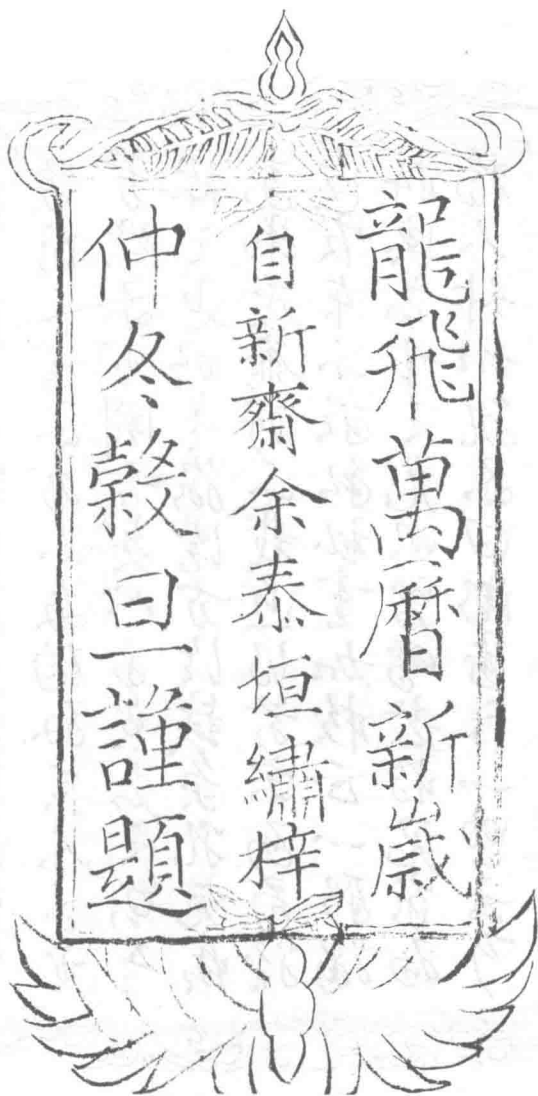 龍飛萬曆新歲
自新齋余泰垣繡梓
仲冬穀旦謹題